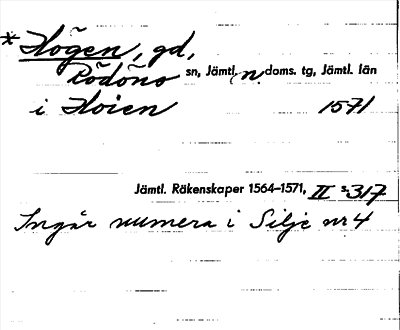 * Högen, gd,
Rödöns sn, Jämtl. n. doms. tg, Jämtl. län
i Hoien 1571
Jämtl. Räkenskaper 1564–1571, II s 317
Ingår numera i Silje nr 4